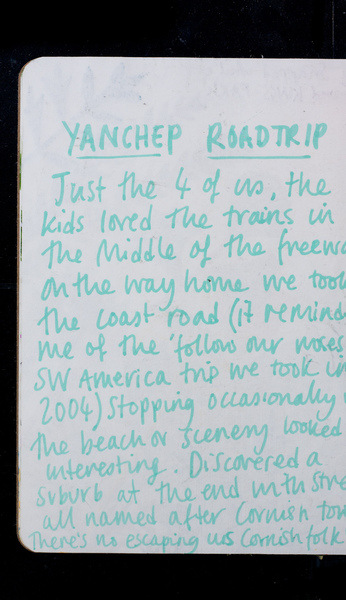 YANCHEP ROADTRIP
Just the 4 of us, the
kids loved the trains in
the Middle of the freewa
on the way home we took
the coast road (it remind
me of the 'follow our noses
SW America trip we took in
2004) Stopping occasionally
the beach or scenery looked
interesting. Discovered a
suburb at the end with stre
all named after Cornish tow
There's no escaping us Cornish folk